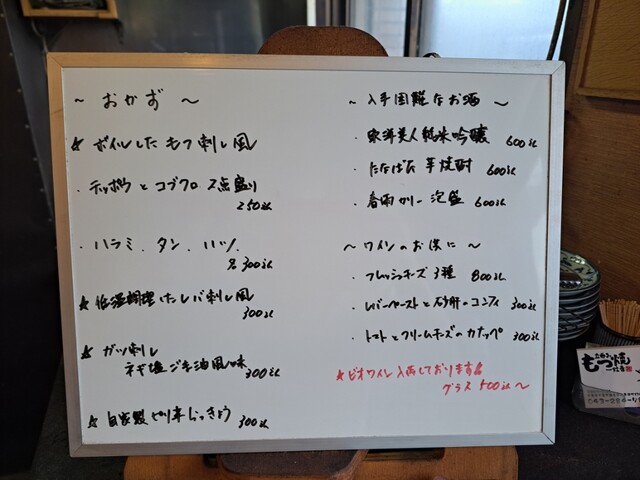 ～ おかず ～
☆ ボイルした もつ刺し風
・テッポウ と コブクロ 2点盛り
250えん
・ハラミ、タン、ハツ、
各300えん
★ 低温調理したレバ刺し風
300えん
★ ガツ刺し
ネギ塩ゴマ油風味
300えん
☆ 自家製 ピリ辛らっきょう 300えん
～ 入手困難なお酒 ～
・東洋美人 純米吟醸 600えん
・たなばた 芋焼酎 600えん
・春雨カリー 泡盛 600えん
～ ワインのお供に ～
・フレッシュチーズ 3種 800えん
・レバーペーストと砂肝のコンフィ 300えん
・トマトとクリームチーズのカナッペ 300えん
★ビオワイン入荷しております
グラス 500えん～
もつ焼